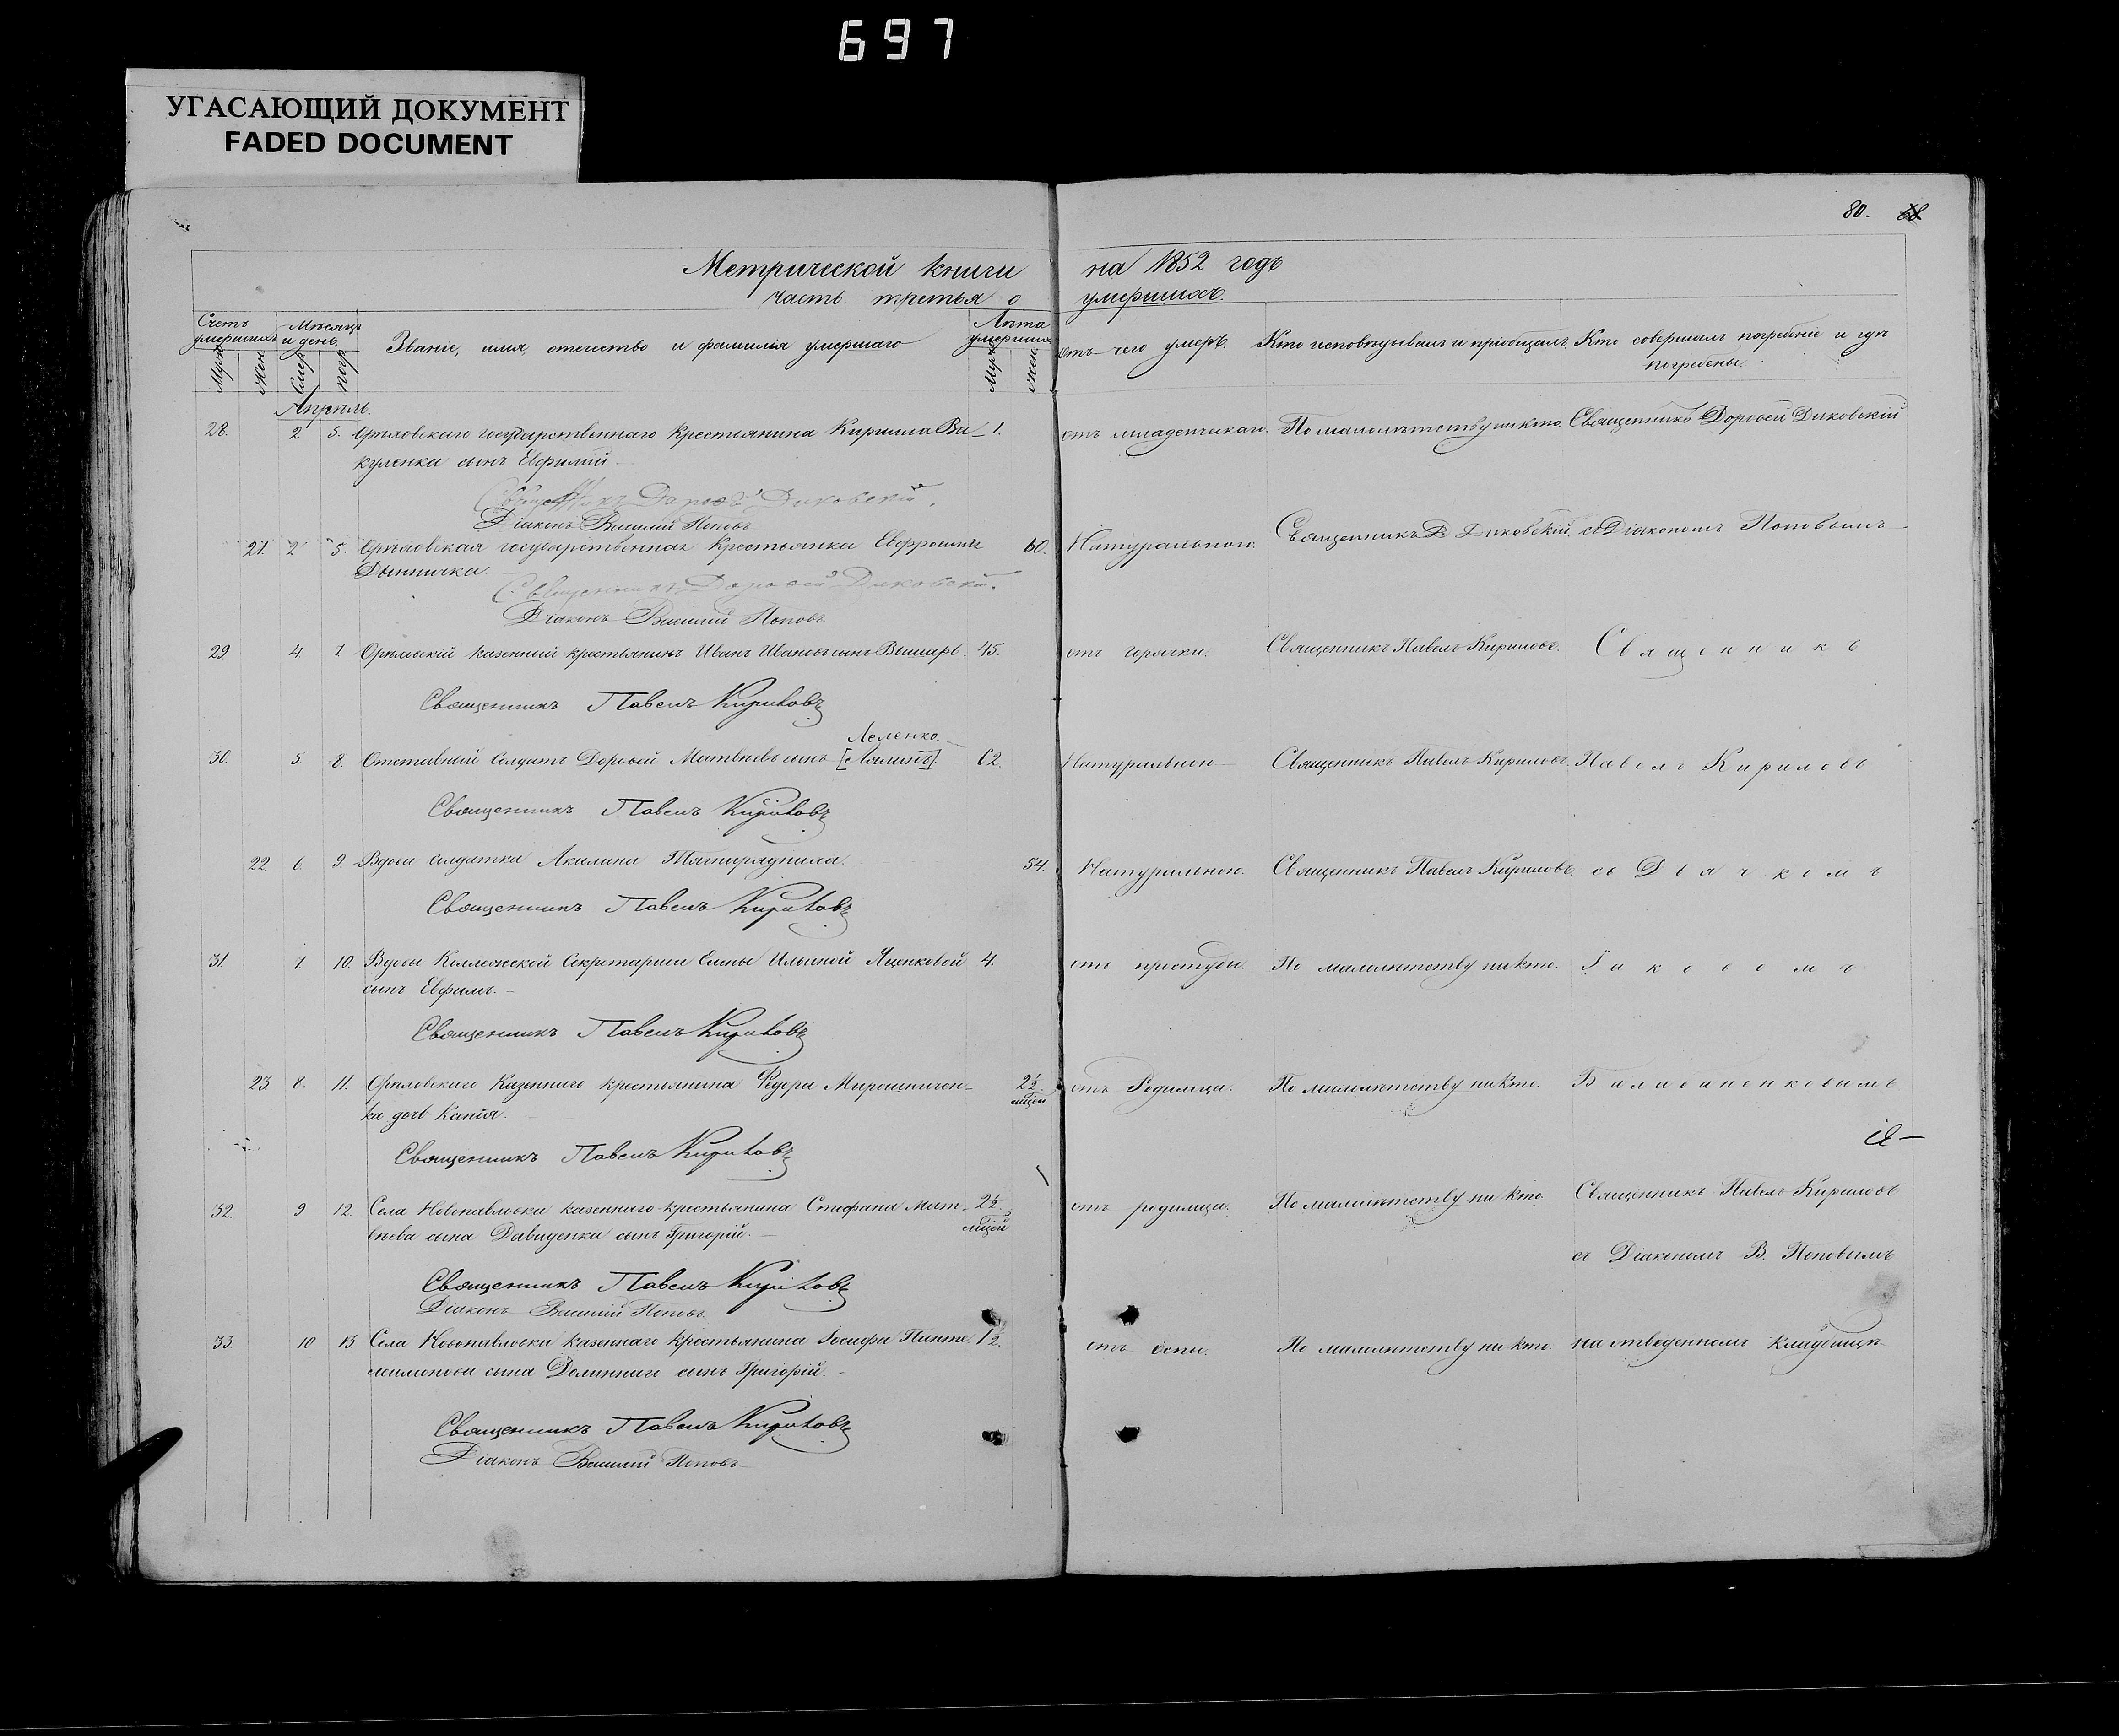 697
УГАСАЮЩИЙ ДОКУМЕНТ
FADED DOCUMENT
80. 68
Метрической книги на 1852 годъ
часть третья о умершихъ.
Счетъ умершихъ
Муж. Жен.
Мѣсяцъ и день.
Смер. Пог.
Званіе, имя, отечество и фамилія умершаго
Лѣта умершихъ
Муж. Жен.
отъ чего умеръ.
Кто исповѣдывалъ и пріобщалъ.
Кто совершалъ погребеніе и гдѣ
погребены.
Апрѣль.
28. 2 5. Орѣловскаго государственнаго крестьянина Кирилла Ва- 1. отъ младенческаго. По малолѣтству никто. Священникъ Дорофей Диковскій
куленка сынъ Евфимій
Священникъ Дорофей Диковскій.
Діаконъ Василій Поповъ
21. 2 5. Орѣловская государственная крестьянка Евфросинія 60. Натуральною. Священникъ Д Диковскій. съ Діакономъ Поповымъ
Священникъ Дорофей Диковскій.
Діаконъ Василій Поповъ
29. 4 7. Орѣловскій казенный крестьянинъ Иванъ Ивановъ сынъ 45. отъ горячки. Священникъ Павелъ Кириловъ. Священникъ
Священникъ Павелъ Кириловъ
Леленко.
30. 5 8. Отставный солдатъ Дорофей Матвѣевъ сынъ 62. Натуральною Священникъ Павелъ Кириловъ. Павелъ Кириловъ
Священникъ Павелъ Кириловъ
22. 6. 9. Вдова солдатка Акилина 54. Натуральною. Священникъ Павелъ Кириловъ. съ Дьячкомъ
Священникъ Павелъ Кириловъ
31. 7. 10. Вдовы Коллежской Секретарши Елены Ильиной Яценковой 4. отъ простуды. По малолѣтству никто. Іаковомъ
сынъ Евфимъ.
Священникъ Павелъ Кириловъ
23. 8. 11. Орѣловскаго Казеннаго крестьянина Федора Мирошничен- 2½ отъ Родимца. По малолѣтству никто. Балабаненковымъ
ка дочь
Священникъ Павелъ Кириловъ
32. 9 12. Села Новопавловки казеннаго крестьянина Стефана Мат- 2½ отъ родимца. По малолѣтству никто. Священникъ Павелъ Кириловъ
вѣева сына Давиденка сынъ Григорій.
съ Діакономъ В. Поповымъ
Священникъ Павелъ Кириловъ
Діаконъ Василій Поповъ
33. 10 13. Села Новопавловки казеннаго крестьянина Іосифа Панте- 1½. отъ оспы. По малолѣтству никто. на отведенномъ кладбищѣ
леимонова сына сынъ Григорій.
Священникъ Павелъ Кириловъ
Діаконъ Василій Поповъ